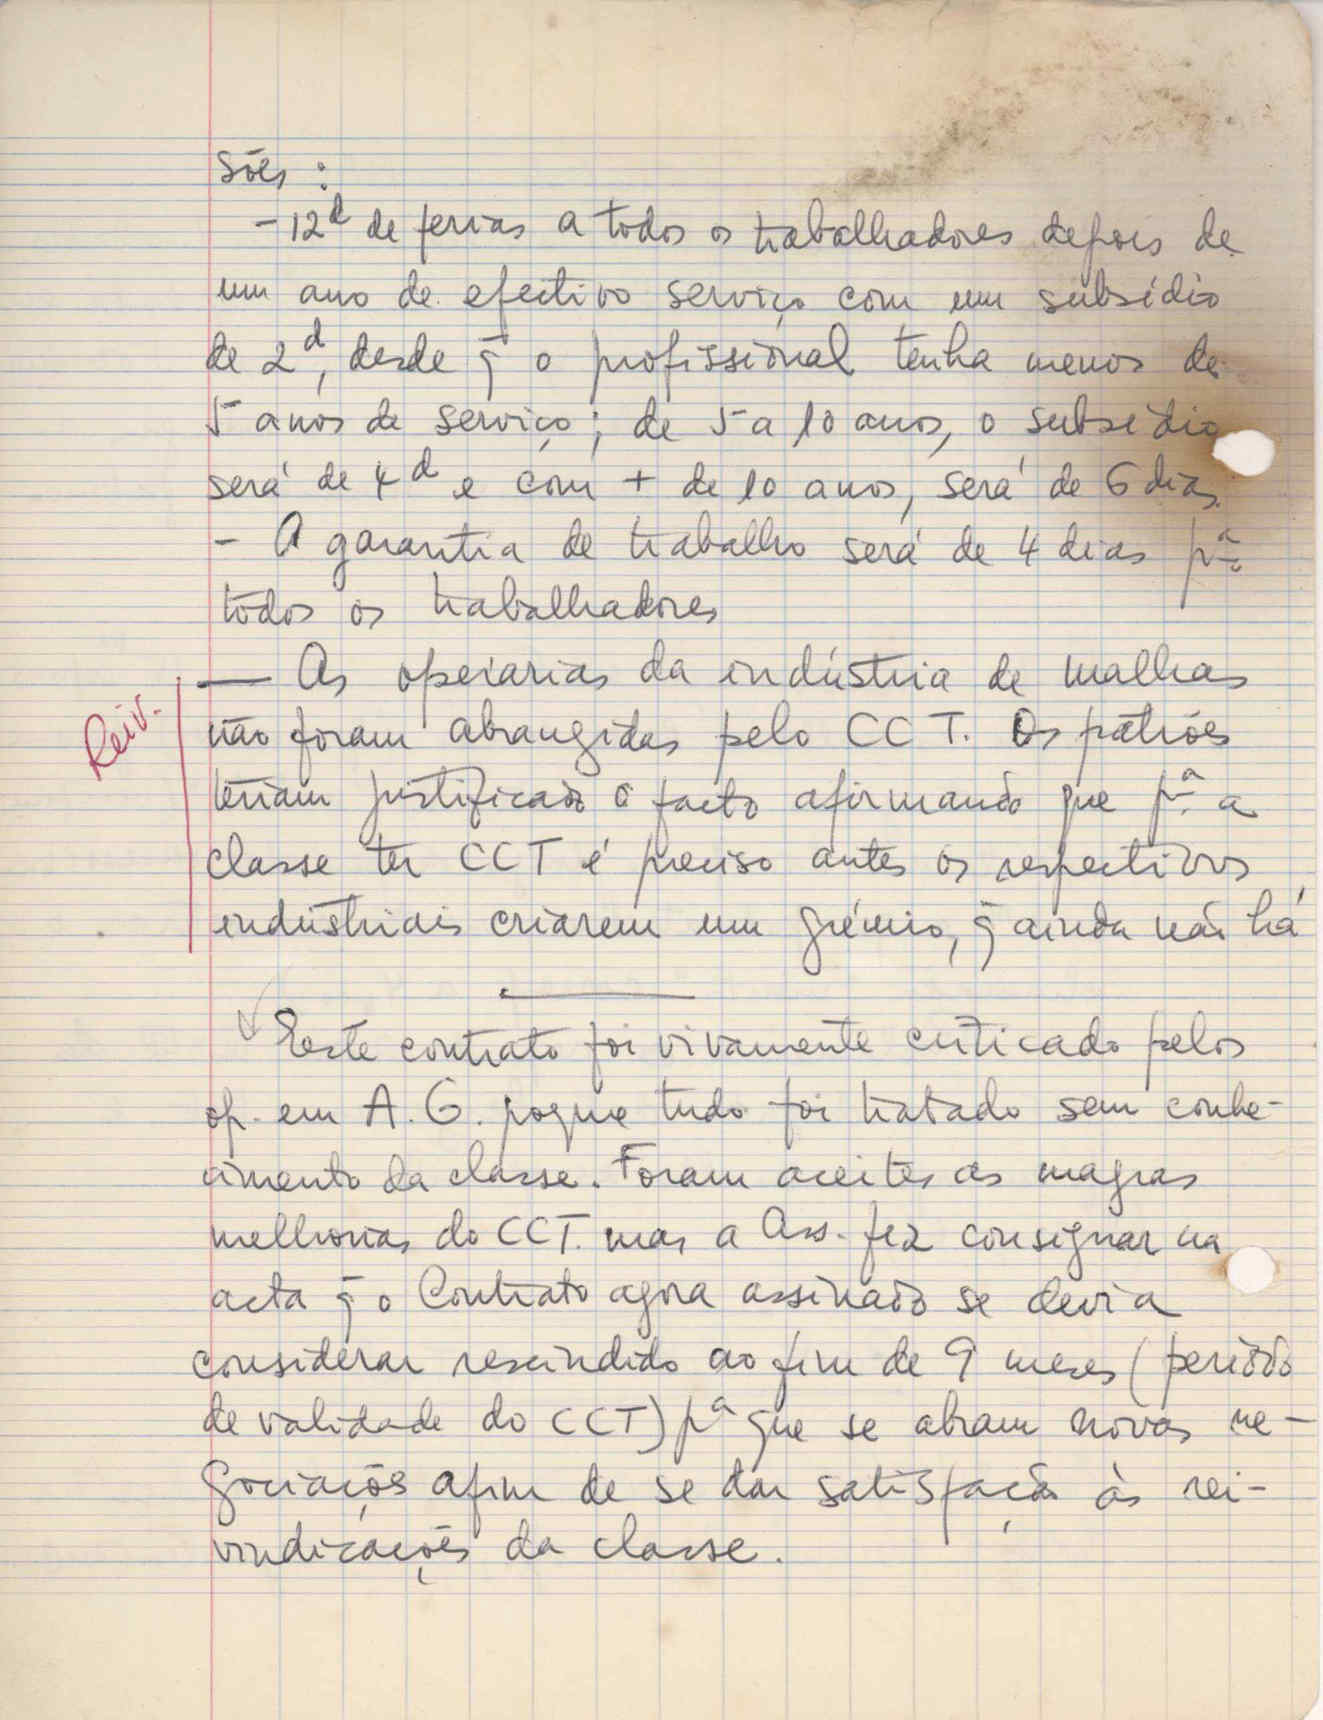 sões :
- 12d de ferias a todos os trabalhadores depois de
um ano de efectivo serviço com um subsídio
de 2d, desde q̄ o profissional tenha menos de
5 anos de serviço; de 5 a 10 anos, o subsídio
será de 4d e com + de 10 anos, será de 6 dias.
- A garantia de trabalho será de 4 dias pª
todos os trabalhadores
Reiv.
— As operarias da indústria de malhas
não foram abrangidas pelo CCT. Os patrões
teriam justificado o facto afirmando que pª a
classe ter CCT é preciso antes os respectivos
industriais criarem um grémio, q̄ ainda não há
Este contrato foi vivamente criticado pelos
op. em A.G. poque tudo foi tratado sem conhe-
cimento da classe. Foram aceites as magras
melhorias do CCT. mas a Ass. fez consignar na
acta q̄ o Contrato agora assinado se devia
considerar rescindido ao fim de 9 meses (periodo
de validade do CCT) pª que se abram novas ne-
gociações afim de se dar satisfação às rei-
vindicações da classe.